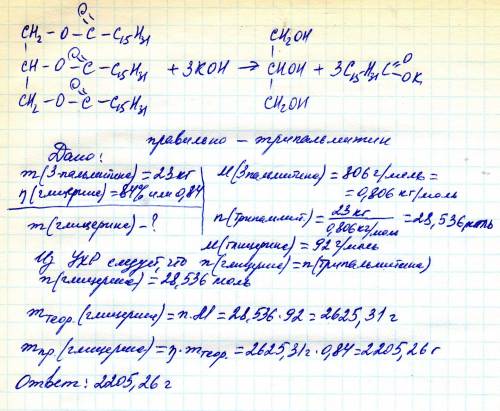 CH₂ - O - C(=O) - C₁₅H₃₁ CH₂OH
CH - O - C(=O) - C₁₅H₃₁ + 3KOH → CHOH + 3C₁₅H₃₁C(=O)OK
CH₂ - O - C(=O) - C₁₅H₃₁ CH₂OH
правильно – трипальмитин
Дано:
m(3-пальмитина) = 23 кг
η(глицерина) = 84% или 0,84
m(глицерина) - ?
M(3пальмитина) = 806 г/моль =
= 0,806 кг/моль
n(трипальмит) = 23 кг / 0,806 кг/моль = 28,536 моль
M(глицерина) = 92 г/моль
Из УХР следует, что n(глицерина) = n(трипальмитина)
n(глицерина) = 28,536 моль
m теор. (глицерина) = n · M = 28,536 · 92 = 2625,31 г
m пр. (глицерина) = η · m теор. = 2625,31 г · 0,84 = 2205,26 г
Ответ: 2205,26 г